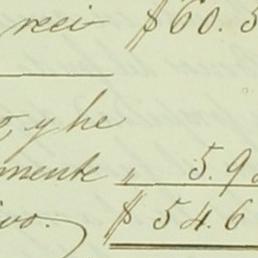 reci $60.5
o, y he
mente " 5.9
ivo. $54.6